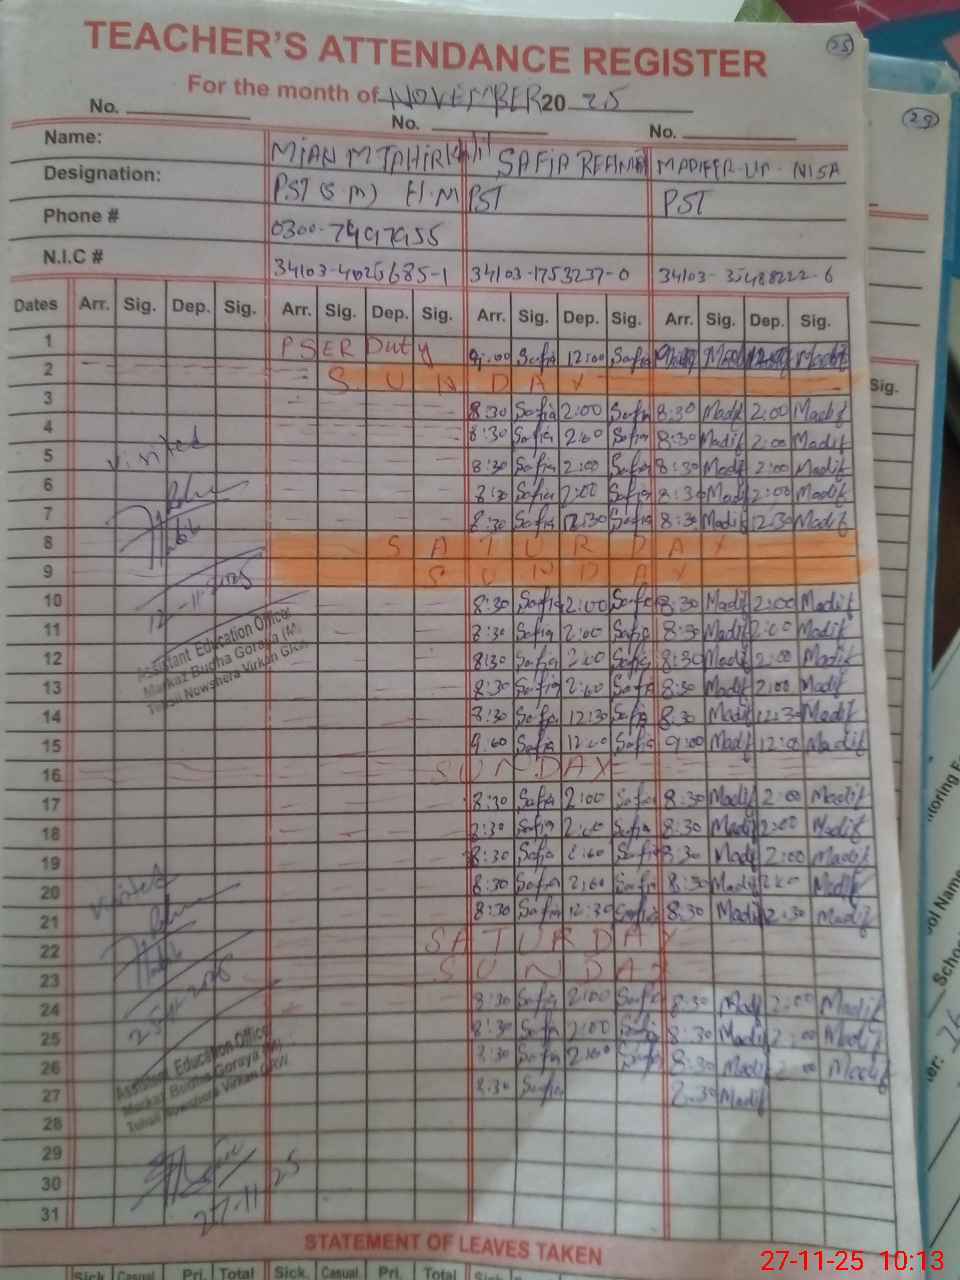 25
TEACHER'S ATTENDANCE REGISTER
For the month of NOVEMBER 20 25
29
No. No. No.
Name: MIAN M TAHIR SAFIA
Designation: PST (S M) H.M PST PST
Phone # 0300-7497955
N.I.C # 34103-4026685-1 34103-1753237-0
Dates Arr. Sig. Dep. Sig. Arr. Sig. Dep. Sig. Arr. Sig. Dep. Sig. Arr. Sig. Dep. Sig.
Sig.
1 PSER Duty 9:00 Safia 12:00 Safia
2 SUNDAY
3 8:30 Safia 2:00 Safia 8:30 Madif 2:00 Madif
4 8:30 Safia 2:00 Safia 8:30 Madif 2:00 Madif
5 8:30 Safia 2:00 Safia 8:30 Madif 2:00 Madif
visited
6 8:30 Safia 2:00 Safia 8:30 Madif 2:00 Madif
7 8:30 Safia 12:30 Safia 8:30 Madif 12:30 Madif
8 SATURDAY
9 SUNDAY
12-11-2025
10 8:30 Safia 2:00 Safia 8:30 Madif 2:00 Madif
11 8:30 Safia 2:00 Safia 8:30 Madif 2:00 Madif
Assistant Education Officer
Markaz Budha Goraya (M)
Tehsil Nowshera Virkan GRW
12 8:30 Safia 2:00 Safia 8:30 Madif 2:00 Madif
13 8:30 Safia 2:00 Safia 8:30 Madif 2:00 Madif
14 8:30 Safia 12:30 Safia 8:30 Madif 12:30 Madif
15 9:00 Safia 12:00 Safia 9:00 Madif 12:00 Madif
16 SUNDAY
17 8:30 Safia 2:00 Safia 8:30 Madif 2:00 Madif
18 8:30 Safia 2:00 Safia 8:30 Madif 2:00 Madif
19 8:30 Safia 2:00 Safia 8:30 Madif 2:00 Madif
20 8:30 Safia 2:00 Safia 8:30 Madif 2:00 Madif
visited
21 8:30 Safia 12:30 Safia 8:30 Madif 12:30 Madif
22 SATURDAY
23 SUNDAY
24 8:30 Safia 2:00 Safia 8:30 Madif 2:00 Madif
25 8:30 Safia 2:00 Safia 8:30 Madif 2:00 Madif
Assistant Education Officer
Markaz Budha Goraya (M)
Tehsil Nowshera Virkan GRW
26 8:30 Safia 2:00 Safia 8:30 Madif 2:00 Madif
27 8:30 Safia Madif
28
29
30
27-11-25
31
STATEMENT OF LEAVES TAKEN
Sick Casual Pri. Total Sick. Casual Pri. Total Sick
27-11-25 10:13